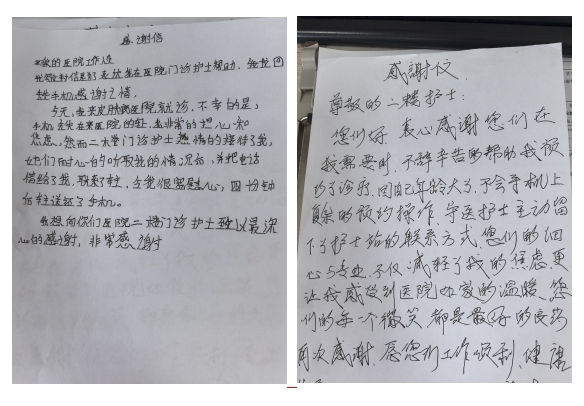 感谢信
尊敬的医院工作人员
此致对信是为了表扬在医院门诊护士帮助
手机感谢之情。
今天，在来皮肤病医院就诊，不幸的是，
手机丢失在来医院的车，我非常的担心和
焦虑，然而二楼门诊护士热情的接待了我，
她们耐心的听取我的情况后，并把电话
借给了我，联系了车，令我很宽慰心，四分钟
后车送还了手机。
我想向你们医院二楼门诊护士致以最深
心的感谢，非常感谢
感谢信
尊敬的二楼护士：
您们好，衷心感谢您们在
我需要时，不辞辛苦的帮助我预
约了诊疗，因自己年龄大了，不会手机上
复杂的预约操作，导医护士主动留
下了护士站的联系方式，您们的细
心与专业，不仅减轻了我的焦虑，更
让我感受到医院如家的温暖，您
们的每一个微笑都是最好的良药
再次感谢，愿您们工作顺利，健康